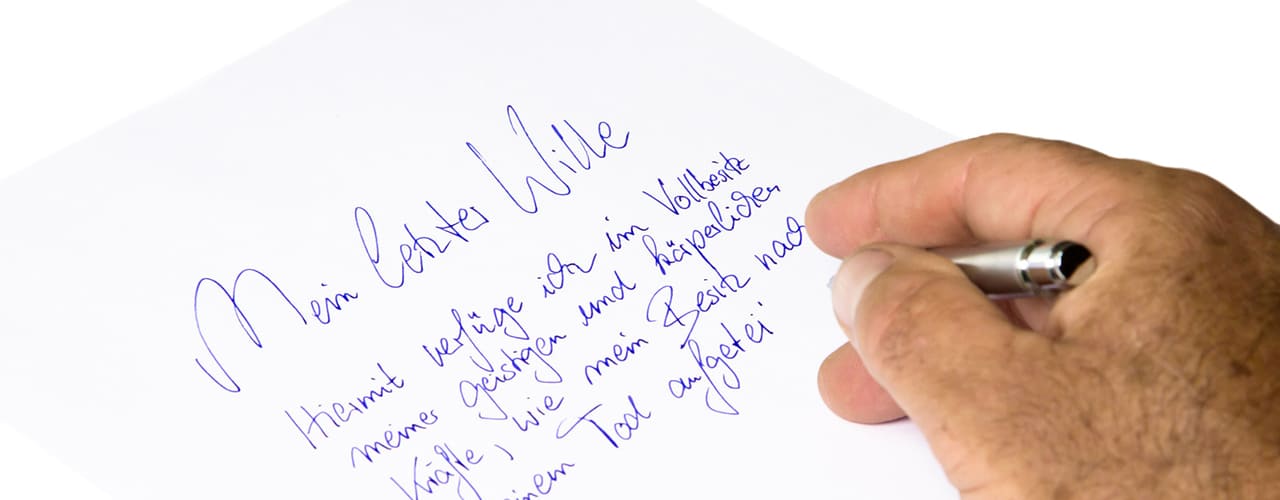 Mein letzter Wille
Hiermit verfüge ich im Vollbesitz
meiner geistigen und körperlichen
Kräfte, wie mein Besitz nach
einem Tod aufgetei